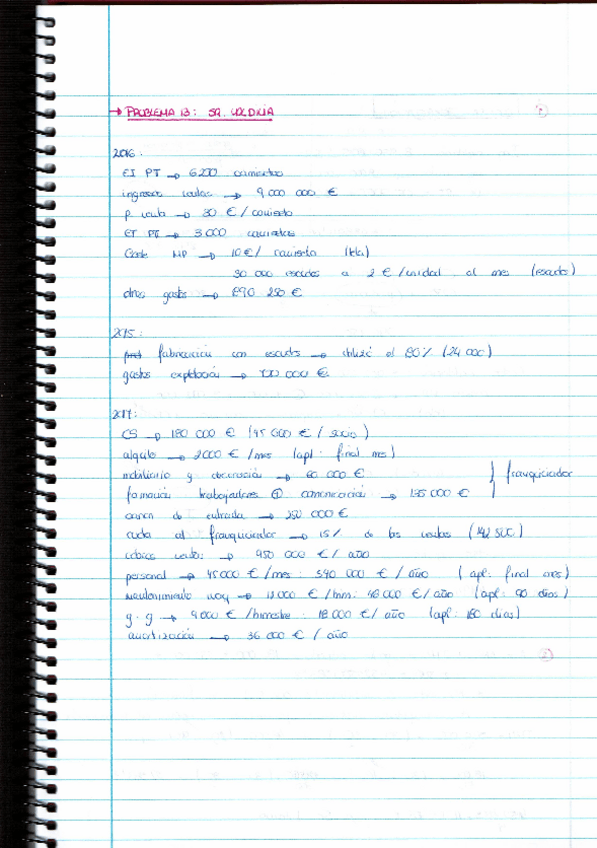 → PROBLEMA 13: SR.
2016:
EI PT → 6200 camisetas
ingresos ventas → 9 000 000 €
p. venta → 30 € / camiseta
EF PT → 3 000 camisetas
Coste MP → 10 € / camiseta (tela)
30 000 escudos a 2 € / unidad al mes (escudo)
otros gastos → 890 250 €
2015:
fabricación con escudos → utilizó el 80% (24 000)
gastos explotación → 000 €
2017:
CS → 180 000 € (45 000 € / socio)
alquiler → 2000 € / mes (apl: final mes)
mobiliario y decoración → 60 000 €
formación trabajadores ⊕ comunicación → 135 000 € franquiciador
canon de entrada → 250 000 €
cuota al franquiciador → 15% de las ventas (142 500)
cobros ventas: → 950 000 € / año
personal → 45 000 € / mes : 540 000 € / año (apl: final mes)
mantenimiento → 12 000 € / trim: 48 000 € / año (apl: 90 días)
g.g → 9 000 € / bimestre : 18 000 € / año (apl: 180 días)
amortización → 36 000 € / año